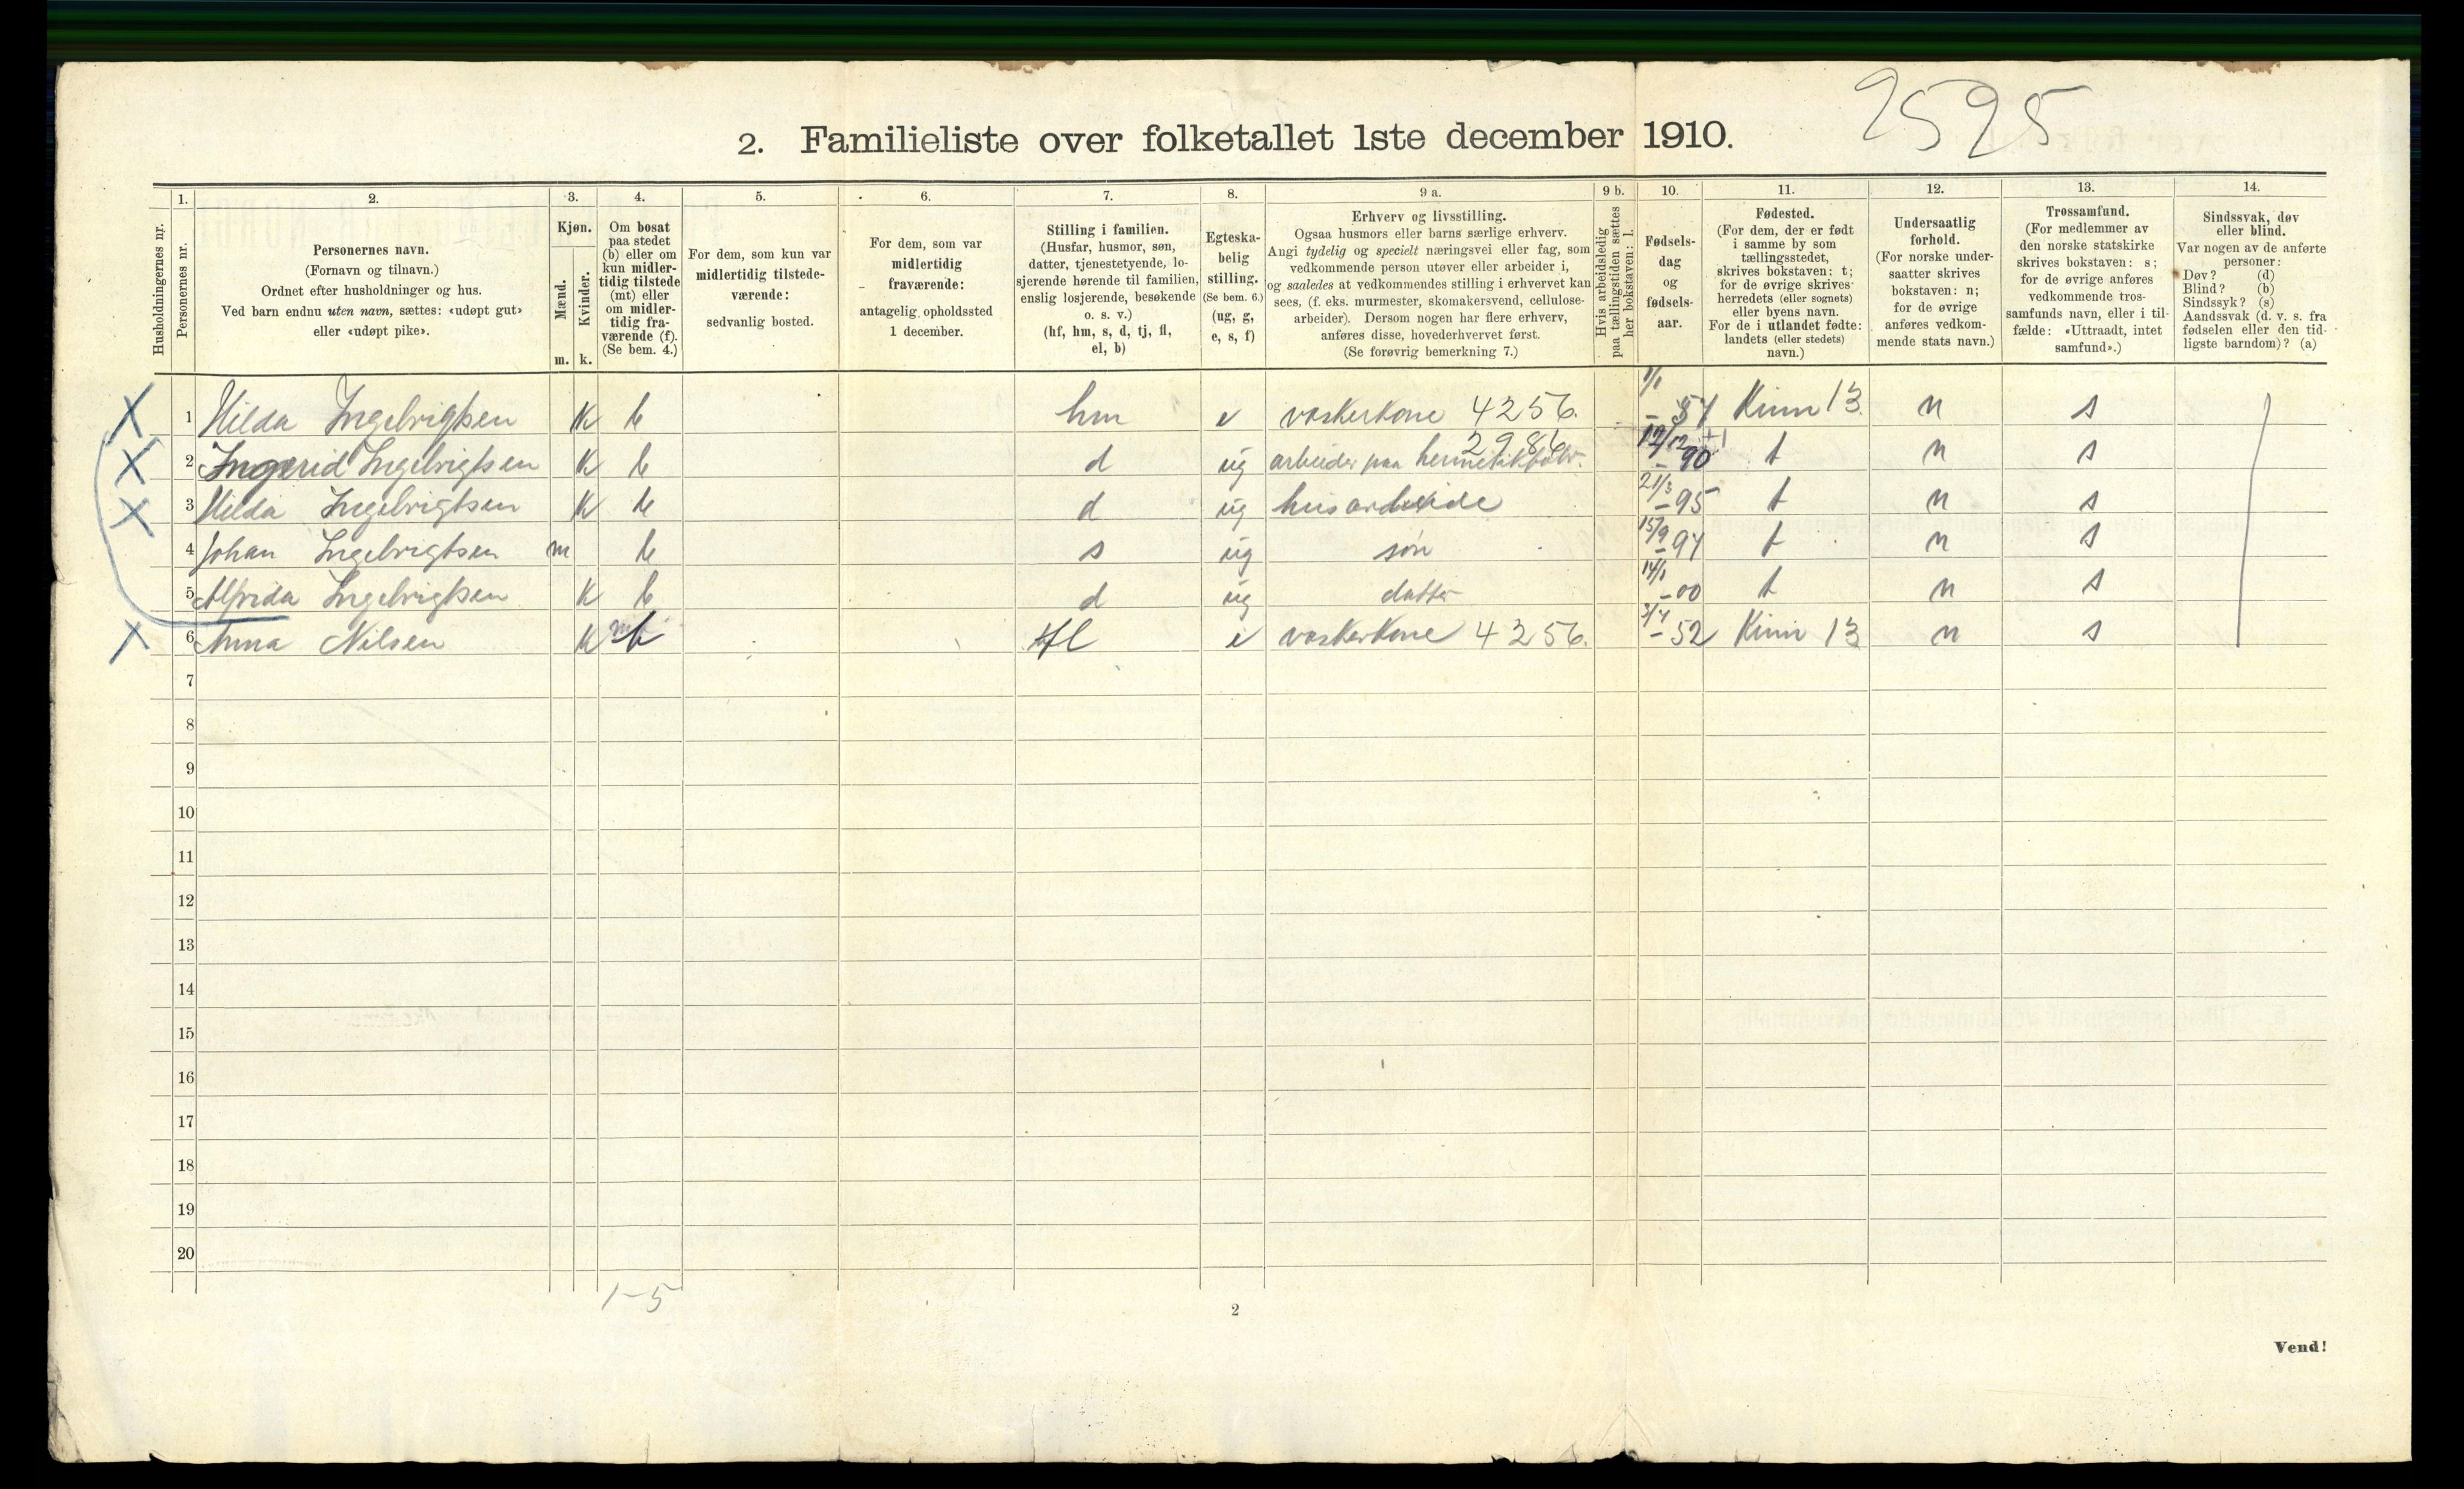 2. Familieliste over folketallet 1ste december 1910.
2525
Husholdningernes nr.
1. Personernes nr.
2. Personernes navn. (Fornavn og tilnavn.) Ordnet efter husholdninger og hus. Ved barn endnu uten navn, sættes: «udøpt gut» eller «udøpt pike».
3. Kjøn. Mænd. m. Kvinder. k.
4. Om bosat paa stedet (b) eller om kun midlertidig tilstede (mt) eller om midlertidig fraværende (f). (Se bem. 4.)
5. For dem, som kun var midlertidig tilstedeværende: sedvanlig bosted.
6. For dem, som var midlertidig fraværende: antagelig opholdssted 1 december.
7. Stilling i familien. (Husfar, husmor, søn, datter, tjenestetyende, losjerende hørende til familien, enslig losjerende, besøkende o. s. v.) (hf, hm, s, d, tj, fl, el, b)
8. Egteskabelig stilling. (Se bem. 6.) (ug, g, e, s, f)
9 a. Erhverv og livsstilling. Ogsaa husmors eller barns særlige erhverv. Angi tydelig og specielt næringsvei eller fag, som vedkommende person utøver eller arbeider i, og saaledes at vedkommendes stilling i erhvervet kan sees, (f. eks. murmester, skomakersvend, cellulose-arbeider). Dersom nogen har flere erhverv, anføres disse, hovederhvervet først. (Se forøvrig bemerkning 7.)
9 b. Hvis arbeidsledig paa tællingstiden sættes her bokstaven: l.
10. Fødselsdag og fødselsaar.
11. Fødested. (For dem, der er født i samme by som tællingsstedet, skrives bokstaven: t; for de øvrige skrives herredets (eller sognets) eller byens navn. For de i utlandet fødte: landets (eller stedets) navn.)
12. Undersaatlig forhold. (For norske undersaatter skrives bokstaven: n; for de øvrige anføres vedkommende stats navn.)
13. Trossamfund. (For medlemmer av den norske statskirke skrives bokstaven: s; for de øvrige anføres vedkommende trossamfunds navn, eller i tilfælde: «Uttraadt, intet samfund».)
14. Sindssvak, døv eller blind. Var nogen av de anførte personer: Døv? (d) Blind? (b) Sindssyk? (s) Aandssvak (d. v. s. fra fødselen eller den tidligste barndom)? (a)
X 1 Hilda Ingebrigtsen K b hm e vaskerkone 4256. 1/1 - 57 Kinn 13 n s
X 2 Ingerid Ingebrigtsen K b d ug arbeider paa hermetikfabr. 2986 12/12 - 90 +1 t n s
X 3 Hilda Ingebrigtsen K b d ug husarbeide 21/3 - 95 t n s
4 Johan Ingebrigtsen m b s ug søn 15/9 - 97 t n s
5 Alfrida Ingebrigtsen K b d ug datter 14/1 - 00 t n s
X 6 Anna Nilsen K b fl e vaskerkone 4256. 3/4 - 52 Kinn 13 n s
7
8
9
10
11
12
13
14
15
16
17
18
19
20
1-5
2
Vend!